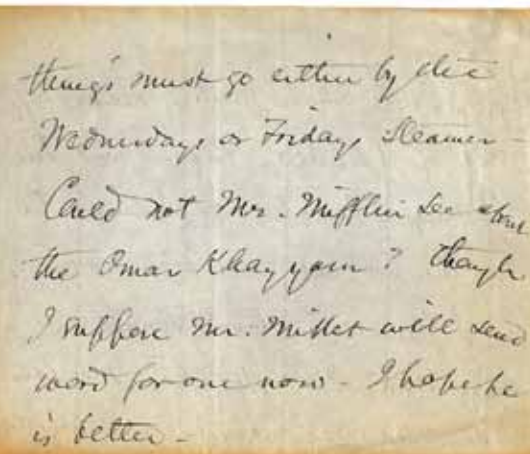 things must go either by the
Wednesdays or Fridays Steamer -
Could not Mrs. Mifflin see about
the Omar Khayyam? though
I suppose Mr. Millet will send
word for one now - I hope he
is better -